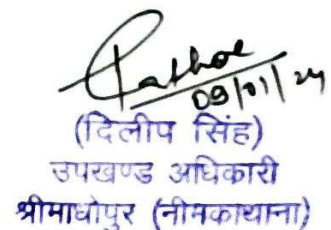 Rathoe
09/01/24
(दिलीप सिंह)
उपखण्ड अधिकारी
श्रीमाधोपुर (नीमकाथाना)